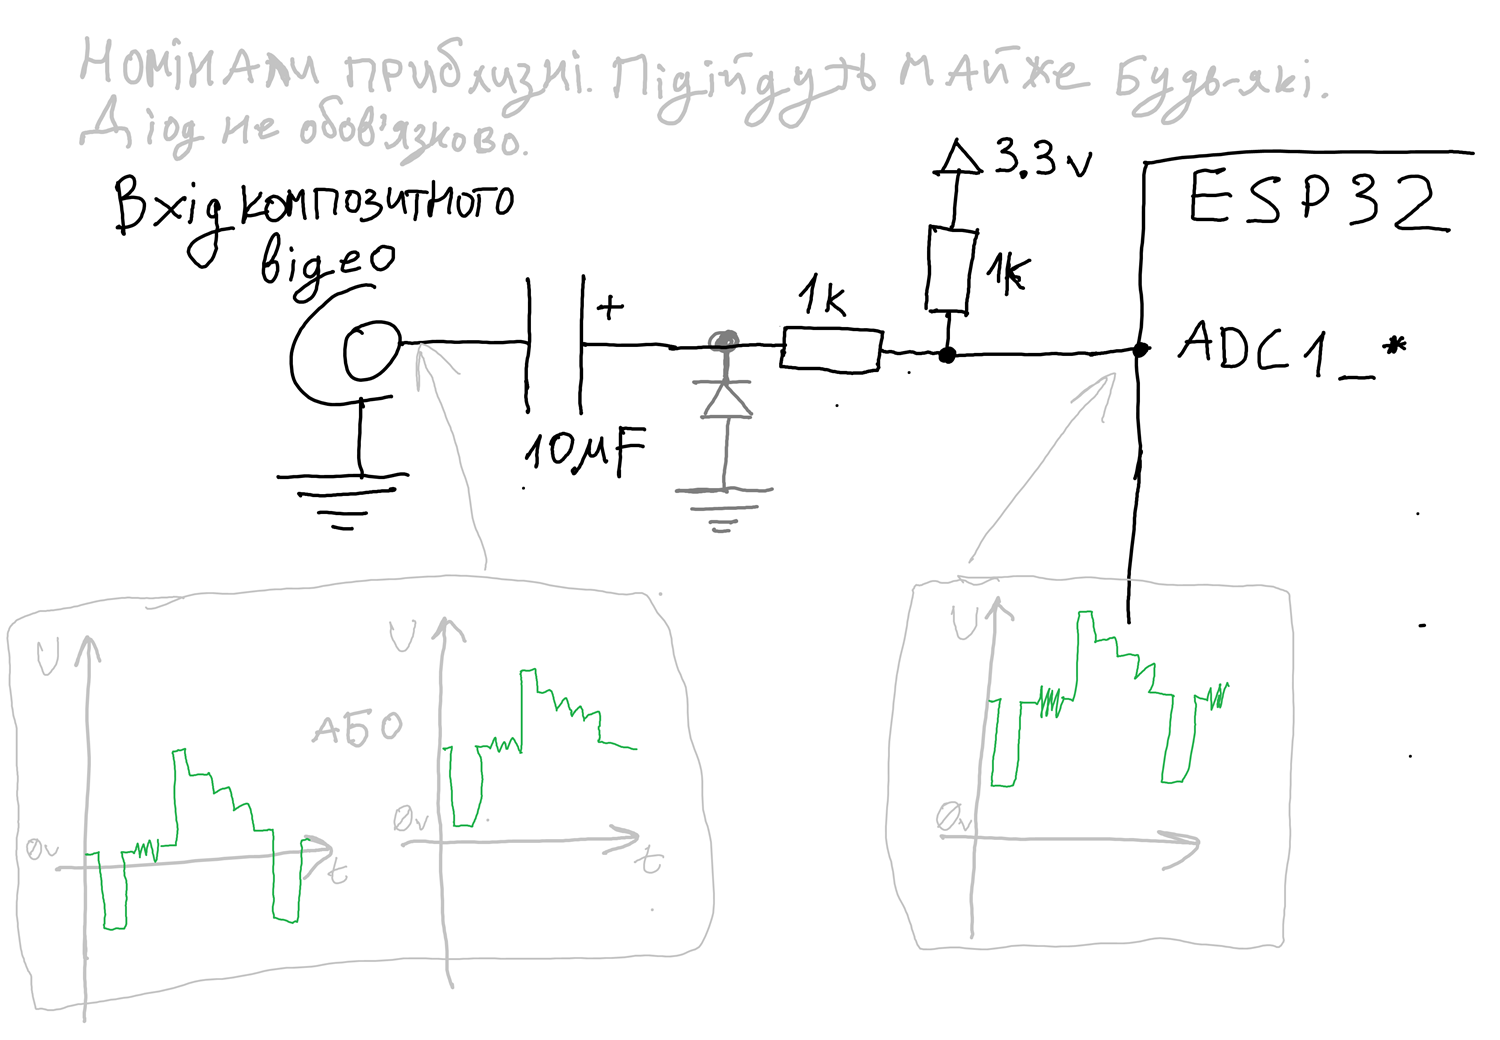 Номінали приблизні. Підійдуть майже будь-які.
Діод не обов'язково.
Вхід композитного
відео
3.3v
ESP32
1K
1K
+
ADC1_*
10µF
U
0v
t
АБО
U
0v
t
U
0v